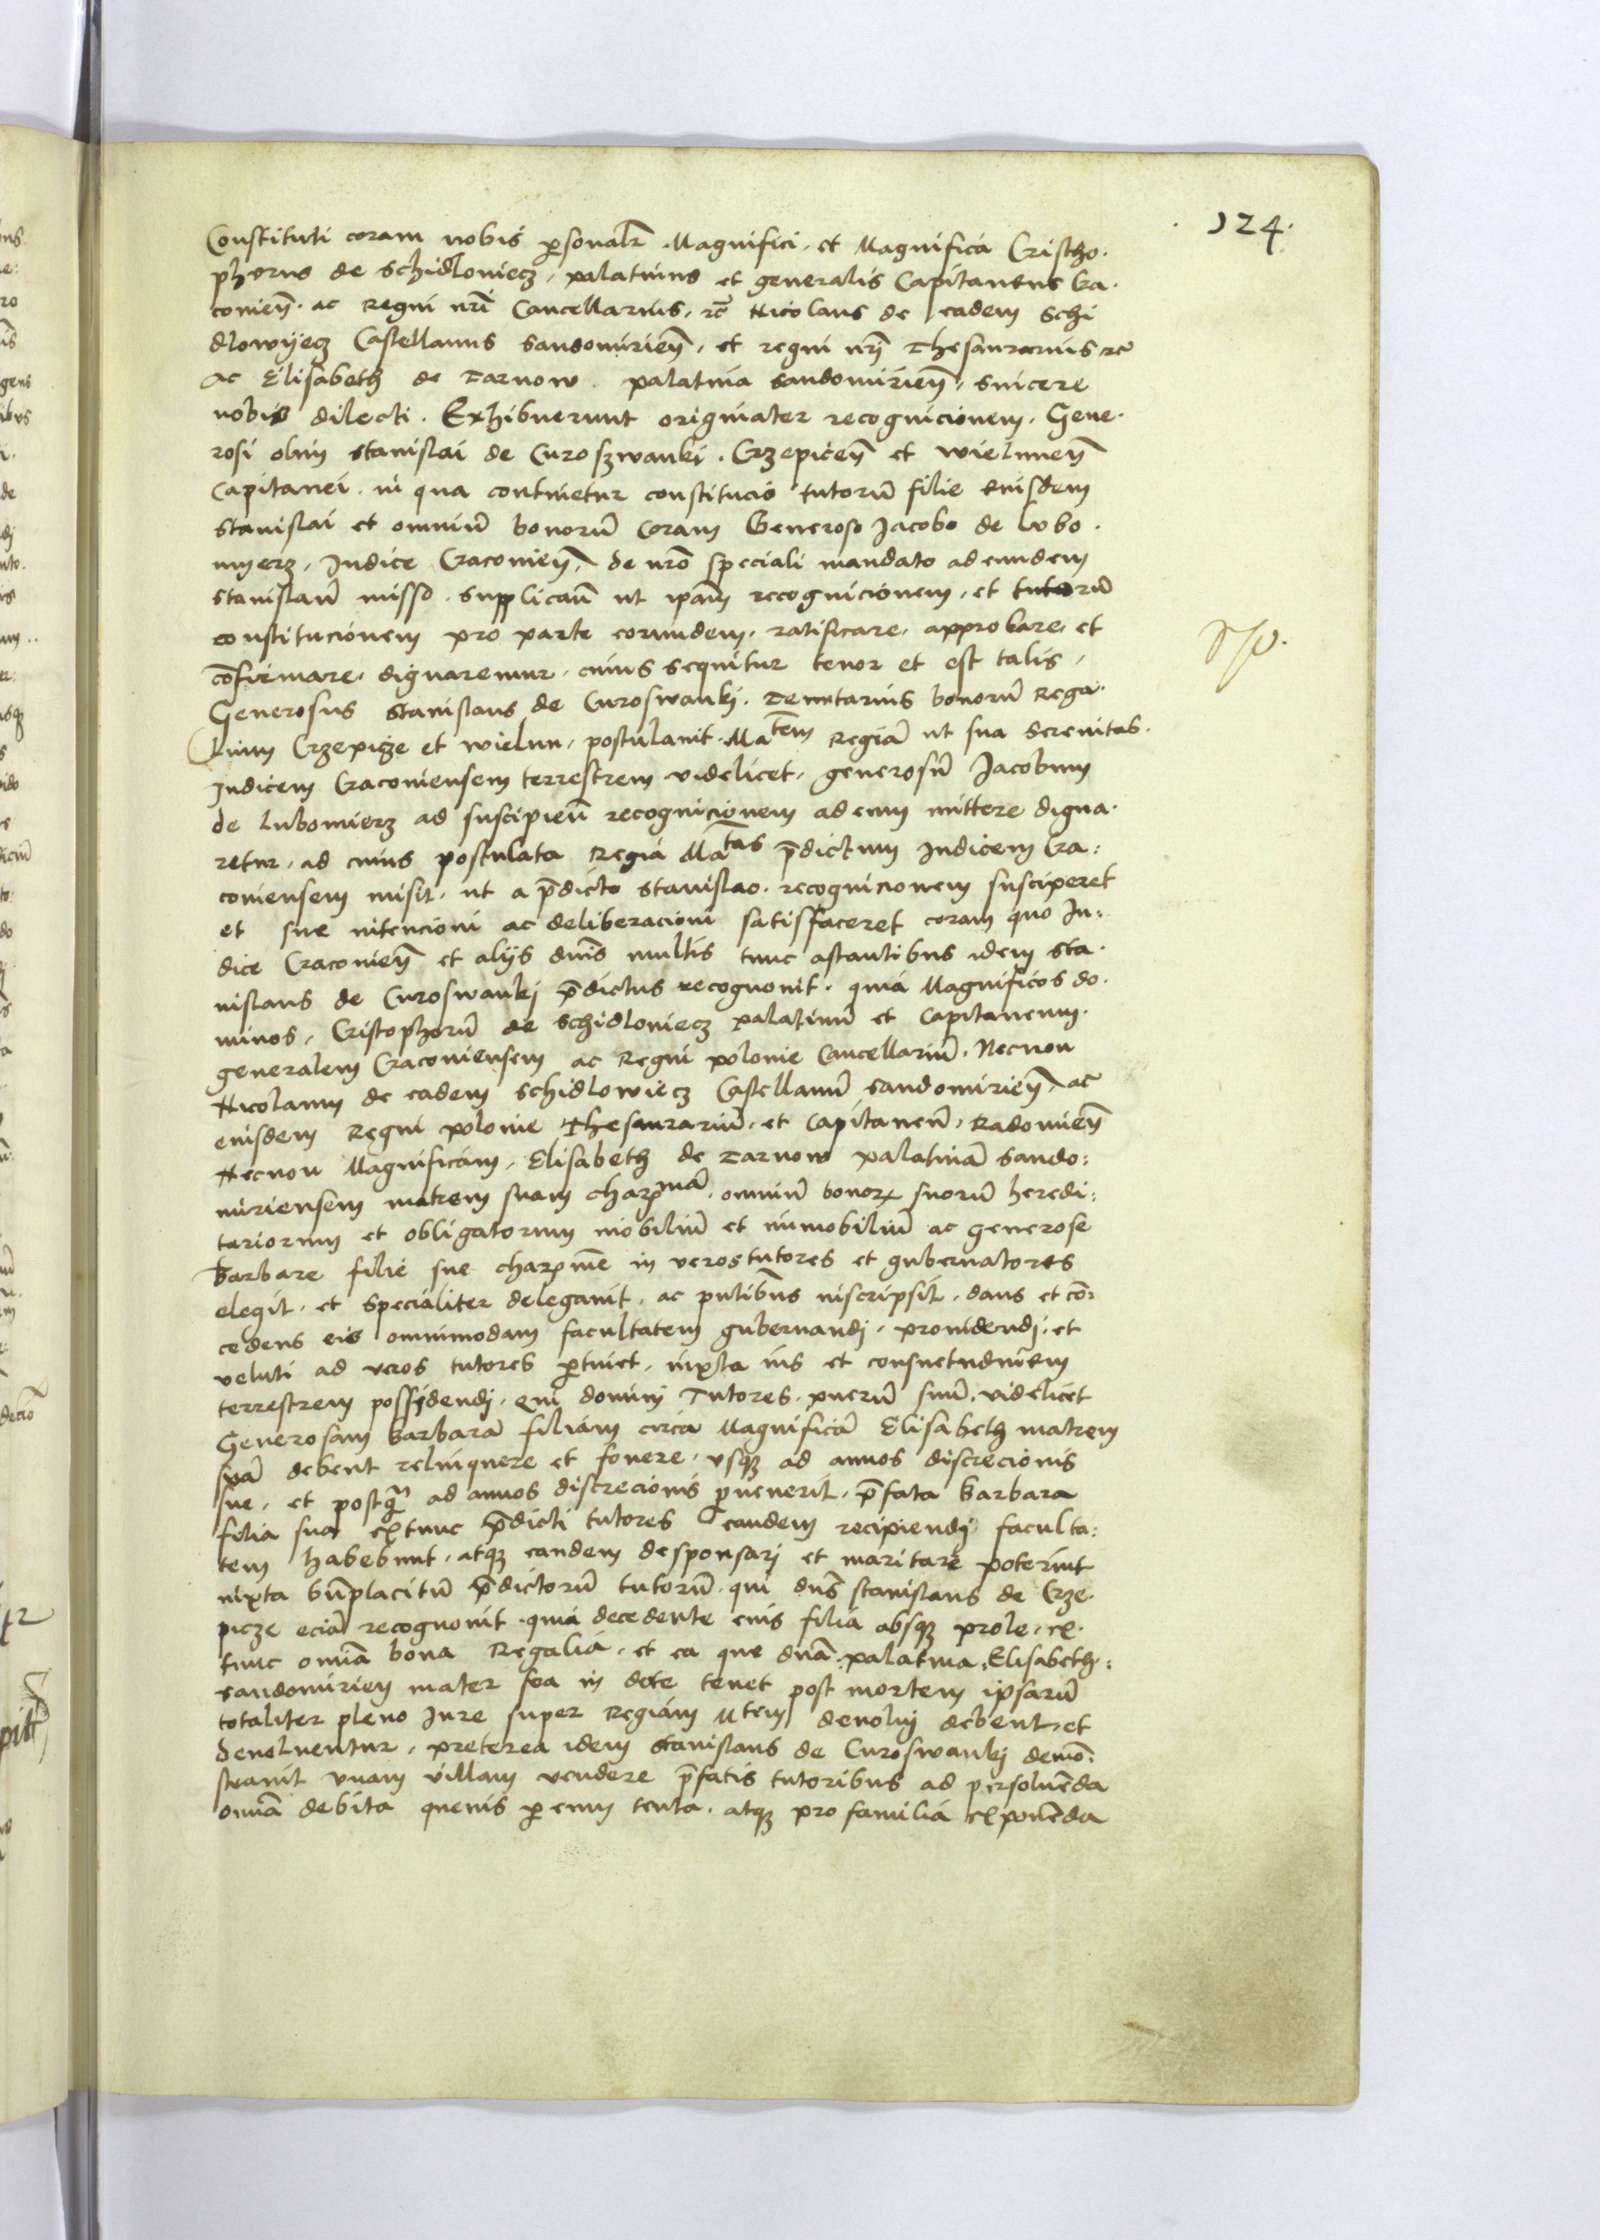 124.
Constituti coram nobis p̄sonalr̄ . Magnifici . et Magnifica Cristho.
phorus de Schidloniecz . palatinus et generalis Capitaneus Cra.
conieñ . ac Regni nr̄i Cancellarius . rc̄ Nicolaus de eadem Schi
dlowijecz Castellanus Sandomirieñ . et regni nrī Thesaurarius rc̄
Ac Elisabeth de Tarnow . palatina Sandomirieñ . sincere
nobis dilecti . Exhibuerunt originaliter recognicionem . Gene.
rosi olim Stanislai de Curoszwankj . Crzepiceñ et wieluneñ
Capitanei . in qua continetur constitucio tutorū filie eiusdem
Stanislai et omniū bonorū Coram Generoso Jacobo de Lubo.
myerz . Judice Cracovieñ . de nrō speciali mandato ad eundem
Stanislaū misso . supplicañ ut ipam̄ recognicionem . et tutorū
constitucionem pro parte eorundem . ratificare . approbare . et
cōfirmare . dignaremur . cuius sequitur tenor et est talis .
Generosus Stanislaus de Curoswankj . Tenutarius bonorū Rega.
lium Crzepicze et wielun . postulauit . Matem̄ Regiā ut sua Serenitas.
Judicem Cracouiensem terrestrem videlicet . generosū Jacobum
de Lubomierz ad suscipieñ recognicionem ad eum mittere digna.
retur . ad cuius postulata Regia Matas p̄dictum Judicem Cra:
couiensem misit . ut a p̄dicto Stanislao . recognicionem susciperet
et sue intencioni ac deliberacioni satisfaceret coram quo Ju:
dice Cracouieñ et alijs dn̄is multis tunc astantibus idem Sta.
nislaus de Curoswankj p̄dictus recognouit . quia Magnificos do.
minos . Cristophorū de Schidloniecz palatinū et Capitaneum.
generalem Cracouiensem ac Regni polonie Cancellariū . Necnon
Nicolaum de eadem Schidlowiecz Castellanū Sandomirieñ . ac
eiusdem Regni polonie Thesaurariū . et Capitaneū . Radomieñ
Necnon Magnificam . Elisabeth de Tarnow palatinā Sando:
miriensem matrem suam charīmā . omniū bonorꝝ suorū heredi:
tariorum et obligatorum mobiliū et inmobiliū ac generose
Barbare filie sue charīme in veros tutores et gubernatores
elegit . et specialiter delegauit . ac pn̄tibus inscripsit . dans et cō:
cedens eis omnimodam facultatem gubernandj . prouidendj . et
veluti ad veros tutores p̄tinet . iuxta ius et consuetudinem
terrestrem possidendj . Qui domini Tutores . puerū suū . videlicet
Generosam Barbarā filiam circa Magnificā Elisabeth matrem
suā debent relinquere et fouere . vsqꝫ ad annos discrecionis
sue . et postqᵃ̄ ad annos discrecionis p̄uenerit . p̄fata Barbara
filia sua extunc p̄dicti tutores eandem recipiendj faculta:
tem habebunt . atqꝫ eandem desponsarj et maritare poterint
iuxta bn̄placitū p̄dictorū tutorū . qui dn̄s Stanislaus de Crze.
picze eciā recognouit . quia decedente eius filia absqꝫ prole . ex.
tunc omīa bona Regalia . et ea que dn̄a palatina Elisabeth.:
Sandomirieñ mater sua in dote tenet post mortem ipsarū
totaliter pleno Jure super Regiam Mtem deuoluj debent . et
deuoluentur . preterea idem Stanislaus de Curoswankj demō:
strauit vnam villam vendere p̄fatis tutoribus ad persoluēda
omīa debita queuis p̄ eum tenta . atqꝫ pro familia exponēda